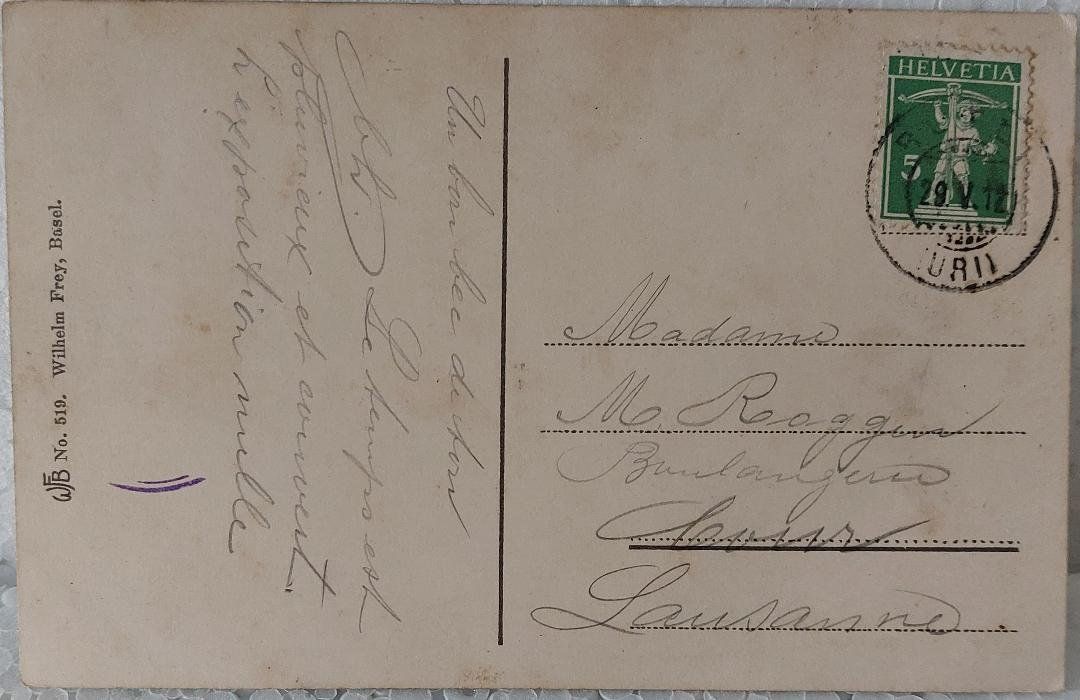 Un bon bec de ton
Chs. Le temps est
pluvieux et couvert.
L'expoution nulle
WFB No. 519. Wilhelm Frey, Basel.
HELVETIA
5
29.V.12
(URI)
Madame
M. Roggen
Boulangerie
Cour
Lausanne